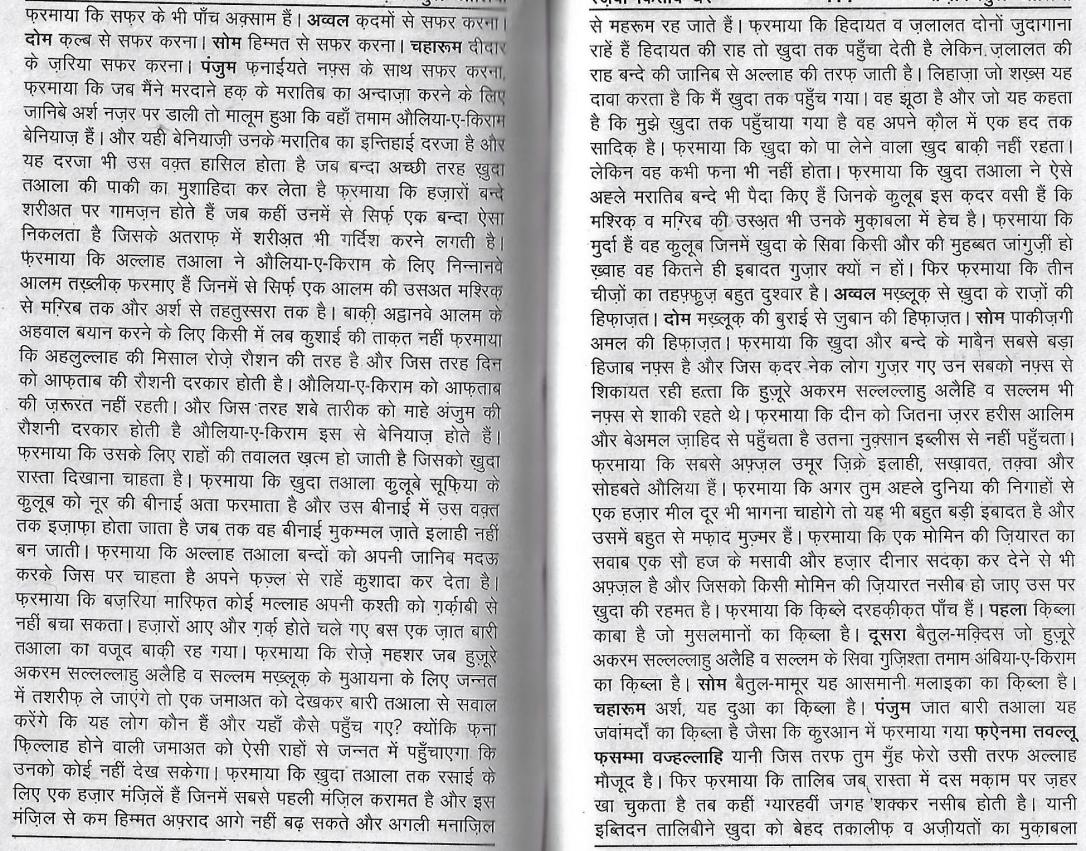 फ़रमाया कि सफ़र के भी पाँच अक़्साम हैं। अव्वल क़दमों से सफ़र करना।
दोम क़ल्ब से सफ़र करना। सोम हिम्मत से सफ़र करना। चहारूम दीदार
के ज़रिया सफ़र करना। पंजुम फ़नाईयते नफ़्स के साथ सफ़र करना,
फ़रमाया कि जब मैंने मरदाने हक़ के मरातिब का अन्दाज़ा करने के लिए
जानिबे अर्श नज़र पर डाली तो मालूम हुआ कि वहाँ तमाम औलिया-ए-किराम
बेनियाज़ हैं। और यही बेनियाज़ी उनके मरातिब का इन्तिहाई दरजा है और
यह दरजा भी उस वक़्त हासिल होता है जब बन्दा अच्छी तरह खुदा
तआला की पाकी का मुशाहिदा कर लेता है फ़रमाया कि हज़ारों बन्दे
शरीअत पर गामज़न होते हैं जब कहीं उनमें से सिर्फ़ एक बन्दा ऐसा
निकलता है जिसके अतराफ़ में शरीअ़त भी गर्दिश करने लगती है।
फ़रमाया कि अल्लाह तआला ने औलिया-ए-किराम के लिए निन्नानवे
आलम तख़्लीक़ फ़रमाए हैं जिनमें से सिर्फ़ एक आलम की उसअत मश्रिक़
से मग़्रिब तक और अर्श से तहतुस्सरा तक है। बाक़ी अट्ठानवे आलम के
अहवाल बयान करने के लिए किसी में लब कुशाई की ताक़त नहीं फ़रमाया
कि अहलुल्लाह की मिसाल रोज़े रौशन की तरह है और जिस तरह दिन
को आफ़ताब की रौशनी दरकार होती है। औलिया-ए-किराम को आफ़ताब
की ज़रूरत नहीं रहती। और जिस तरह शबे तारीक को माहे अंजुम की
रौशनी दरकार होती है औलिया-ए-किराम इस से बेनियाज़ होते हैं।
फ़रमाया कि उसके लिए राहों की तवालत ख़त्म हो जाती है जिसको ख़ुदा
रास्ता दिखाना चाहता है। फ़रमाया कि ख़ुदा तआला कुलूबे सूफ़िया के
कुलूब को नूर की बीनाई अता फरमाता है और उस बीनाई में उस वक़्त
तक इज़ाफ़ा होता जाता है जब तक वह बीनाई मुकम्मल ज़ाते इलाही नहीं
बन जाती। फ़रमाया कि अल्लाह तआला बन्दों को अपनी जानिब मदऊ
करके जिस पर चाहता है अपने फज़्ल से राहें कुशादा कर देता है।
फ़रमाया कि बज़रिया मारिफ़त कोई मल्लाह अपनी कश्ती को ग़र्क़ाबी से
नहीं बचा सकता। हज़ारों आए और ग़र्क़ होते चले गए बस एक ज़ात बारी
तआला का वजूद बाक़ी रह गया। फ़रमाया कि रोज़े महशर जब हुज़ूरे
अकरम सल्लल्लाहु अलैहि व सल्लम मख़्लूक़ के मुआयना के लिए जन्नत
में तशरीफ़ ले जाएंगे तो एक जमाअत को देखकर बारी तआला से सवाल
करेंगे कि यह लोग कौन हैं और यहाँ कैसे पहुँच गए? क्योंकि फ़ना
फ़िल्लाह होने वाली जमाअत को ऐसी राहों से जन्नत में पहुँचाएगा कि
उनको कोई नहीं देख सकेगा। फ़रमाया कि ख़ुदा तआला तक रसाई के
लिए एक हज़ार मंज़िलें हैं जिनमें सबसे पहली मंज़िल करामत है और इस
मंज़िल से कम हिम्मत अफ़्राद आगे नहीं बढ़ सकते और अगली मनाज़िल
से महरूम रह जाते हैं। फ़रमाया कि हिदायत व ज़लालत दोनों जुदागाना
राहें हैं हिदायत की राह तो ख़ुदा तक पहुँचा देती है लेकिन ज़लालत की
राह बन्दे की जानिब से अल्लाह की तरफ़ जाती है। लिहाज़ा जो शख़्स यह
दावा करता है कि मैं ख़ुदा तक पहुँच गया। वह झूठा है और जो यह कहता
है कि मुझे ख़ुदा तक पहुँचाया गया है वह अपने क़ौल में एक हद तक
सादिक़ है। फ़रमाया कि ख़ुदा को पा लेने वाला ख़ुद बाक़ी नहीं रहता।
लेकिन वह कभी फना भी नहीं होता। फ़रमाया कि ख़ुदा तआला ने ऐसे
अहले मरातिब बन्दे भी पैदा किए हैं जिनके कुलूब इस क़दर वसी हैं कि
मश्रिक़ व मग़्रिब की उस्अ़त भी उनके मुक़ाबला में हेच है। फ़रमाया कि
मुर्दा हैं वह कुलूब जिनमें ख़ुदा के सिवा किसी और की मुहब्बत जांगुज़ीं हो
ख़्वाह वह कितने ही इबादत गुज़ार क्यों न हों। फिर फ़रमाया कि तीन
चीज़ों का तहफ़्फ़ुज़ बहुत दुश्वार है। अव्वल मख़्लूक़ से ख़ुदा के राज़ों की
हिफ़ाज़त। दोम मख़्लूक़ की बुराई से ज़ुबान की हिफ़ाज़त। सोम पाकीज़गी
अमल की हिफ़ाज़त। फ़रमाया कि ख़ुदा और बन्दे के माबैन सबसे बड़ा
हिजाब नफ़्स है और जिस क़दर नेक लोग गुज़र गए उन सबको नफ़्स से
शिकायत रही हत्ता कि हुज़ूरे अकरम सल्लल्लाहु अलैहि व सल्लम भी
नफ़्स से शाकी रहते थे। फ़रमाया कि दीन को जितना ज़रर हरीस आलिम
और बेअमल ज़ाहिद से पहुँचता है उतना नुक़्सान इब्लीस से नहीं पहुँचता।
फ़रमाया कि सबसे अफ़्ज़ल उमूर ज़िक्रे इलाही, सख़ावत, तक़्वा और
सोहबते औलिया हैं। फ़रमाया कि अगर तुम अहले दुनिया की निगाहों से
एक हज़ार मील दूर भी भागना चाहोगे तो यह भी बहुत बड़ी इबादत है और
उसमें बहुत से मफ़ाद मुज़्मर हैं। फ़रमाया कि एक मोमिन की ज़ियारत का
सवाब एक सौ हज के मसावी और हज़ार दीनार सदक़ा कर देने से भी
अफ़्ज़ल है और जिसको किसी मोमिन की ज़ियारत नसीब हो जाए उस पर
ख़ुदा की रहमत है। फ़रमाया कि क़िब्ले दरहक़ीक़त पाँच हैं। पहला क़िब्ला
काबा है जो मुसलमानों का क़िब्ला है। दूसरा बैतुल-मक़्दिस जो हुज़ूरे
अकरम सल्लल्लाहु अलैहि व सल्लम के सिवा गुज़िश्ता तमाम अंबिया-ए-किराम
का क़िब्ला है। सोम बैतुल-मामूर यह आसमानी मलाइका का क़िब्ला है।
चहारूम अर्श, यह दुआ का क़िब्ला है। पंजुम जात बारी तआला यह
जवांमर्दों का क़िब्ला है जैसा कि क़ुरआन में फ़रमाया गया फ़ऐनमा तवल्लू
फ़सम्मा वज्हल्लाहि यानी जिस तरफ़ तुम मुँह फेरो उसी तरफ़ अल्लाह
मौजूद है। फिर फ़रमाया कि तालिब जब रास्ता में दस मक़ाम पर ज़हर
खा चुकता है तब कहीं ग्यारहवीं जगह शक्कर नसीब होती है। यानी
इब्तिदन तालिबीने ख़ुदा को बेहद तकालीफ़ व अज़ीयतों का मुक़ाबला